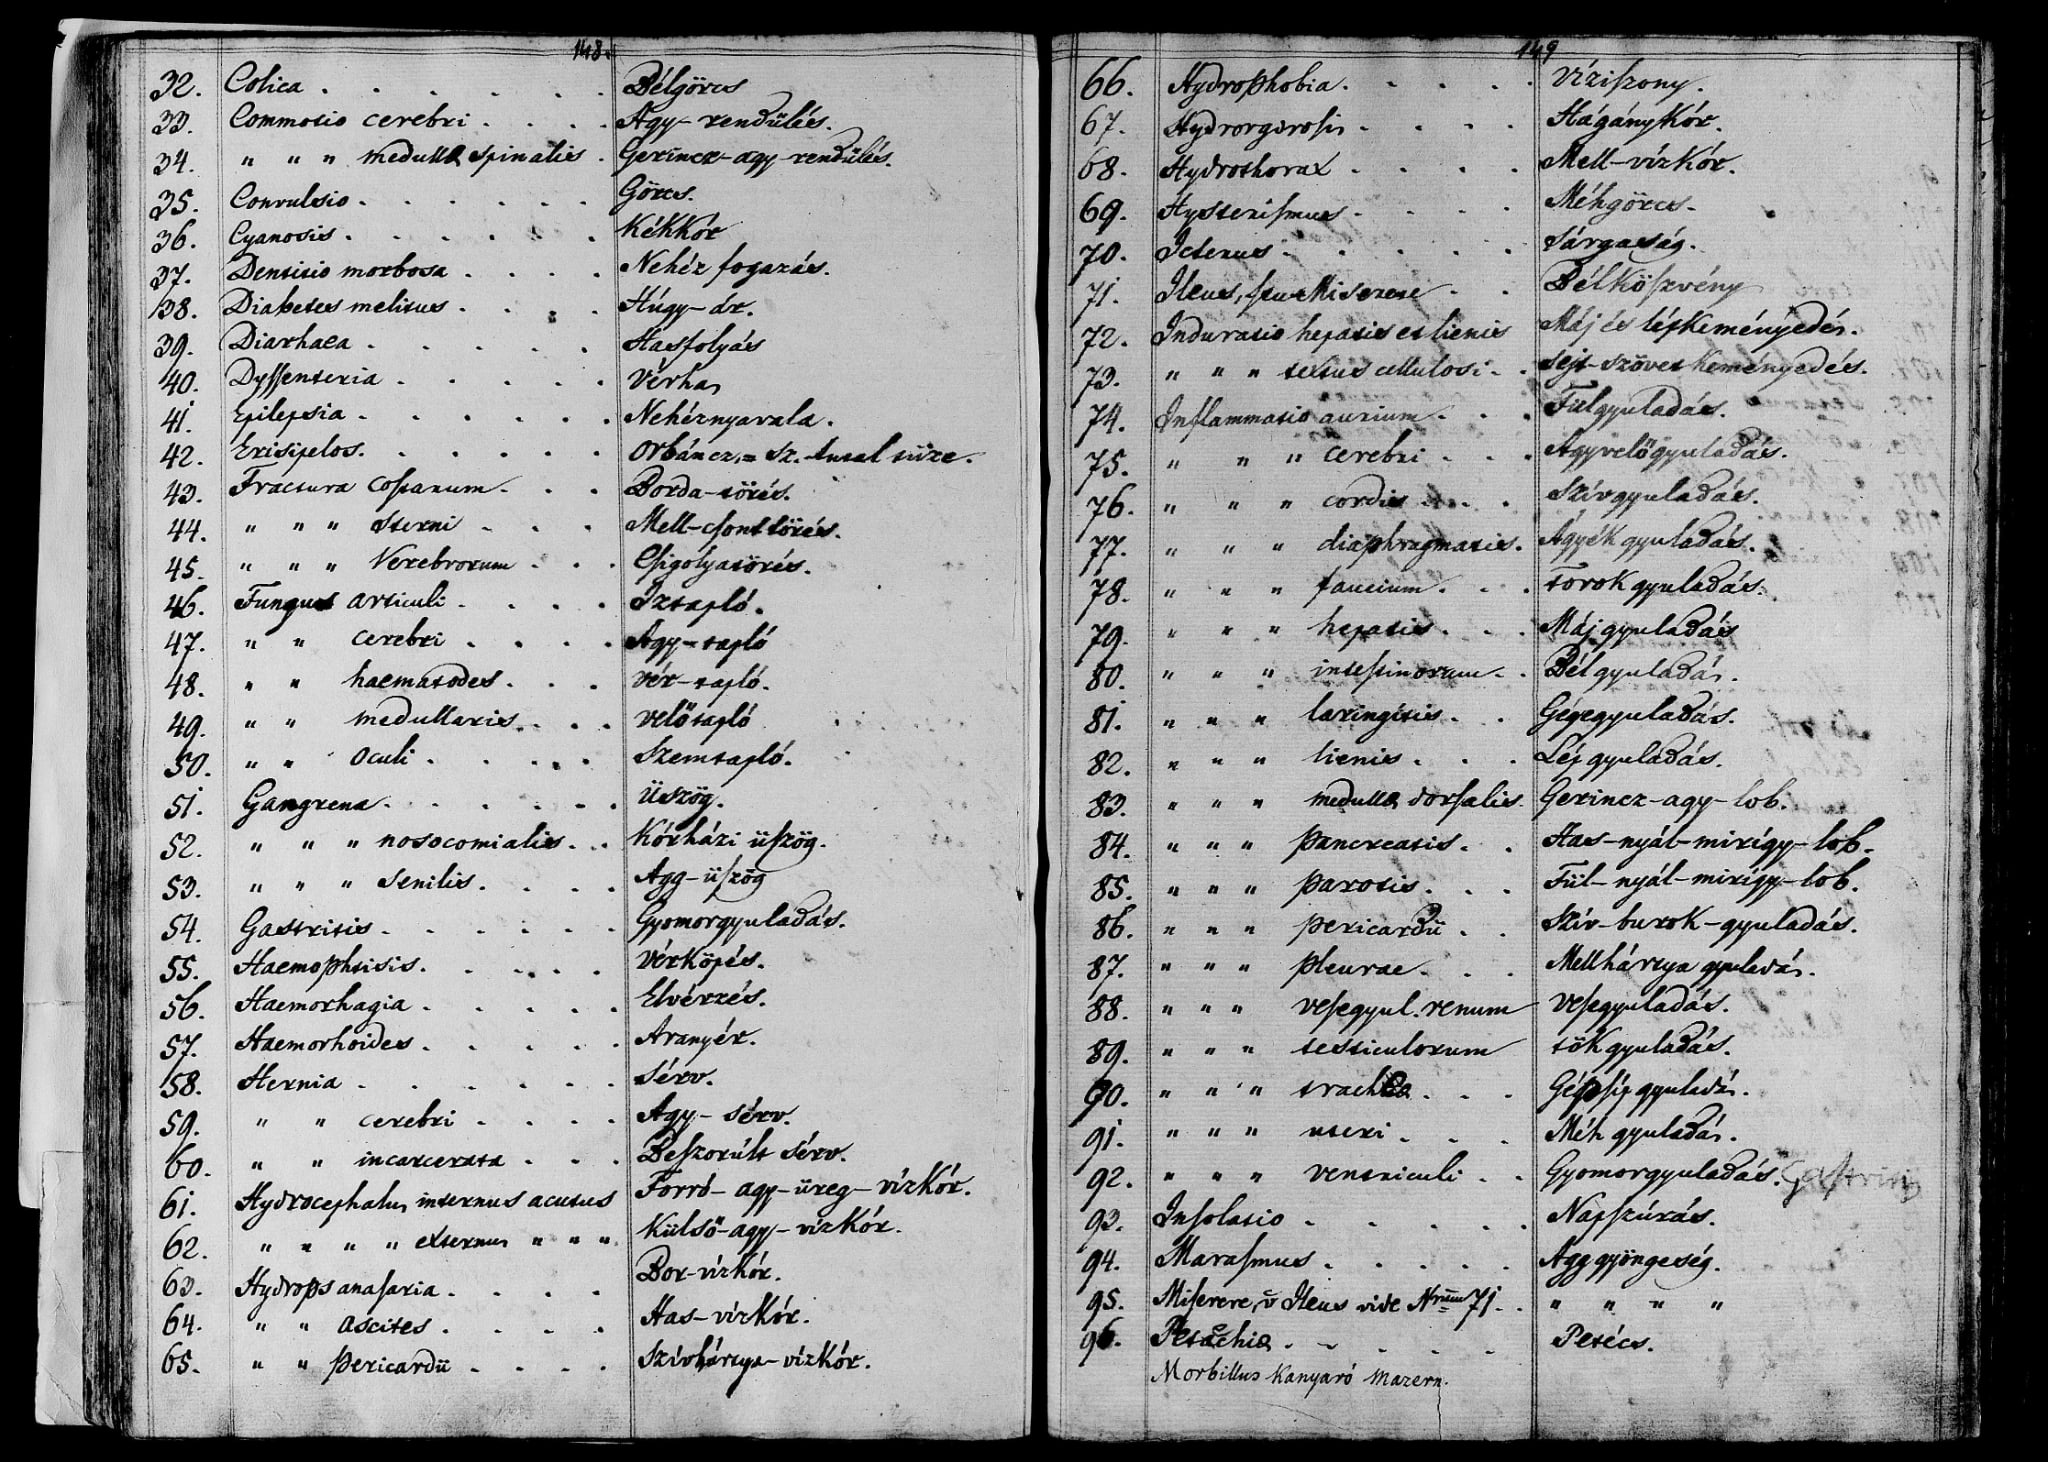 148.
32. Colica . . . . . . . Bélgörcs
33. Commotio cerebri . . . . Agy-rendülés.
34. " " " medullæ spinalis . Gerincz-agy-rendülés.
35. Convulsio . . . . . . Görcs.
36. Cyanosis . . . . . . Kékkór
37. Dentitio morbosa . . . . Nehéz fogazás.
38. Diabetes melitus . . . . Húgy-ár.
39. Diarhaea . . . . . . Hasfolyás
40. Dyssenteria . . . . . Vérhas
41. Epilepsia . . . . . . Nehéznyavala.
42. Erisipelos. . . . . . Orbáncz, = Sz. Antal tüze.
43. Fractura costarum . . . Borda-törés.
44. " " " Sterni . . . Mell-csont törés.
45. " " " Verebrorum . . . Csigolyatörés.
46. Fungus articuli . . . . Iztapló.
47. " " cerebri . . . . Agy-tapló
48. " " haematodes . . . vér-tapló.
49. " " medullaris . . . velőtapló
50. " " Oculi . . . . Szemtapló.
51. Gangrena . . . . . . Üszög.
52. " " " nosocomialis . . Kórházi üszög.
53. " " " Senilis. . . . Agg-üszög
54. Gastritis . . . . . . Gyomorgyuladás.
55. Haemophtisis . . . . . Vérköpés.
56. Haemorhagia . . . . . Elvérzés.
57. Haemorhoides . . . . . Aranyér.
58. Hernia . . . . . . Sérv.
59. " " cerebri . . . . Agy-sérv.
60. " " incarcerata . . . Beszorúlt sérv.
61. Hydrocephalus internus acutus Forró-agy-üreg-vízkór.
62. " " " " externus " " " Külső-agy-vízkór.
63. Hydrops anasaria . . . . Bőr-vízkór.
64. " " ascites . . . . Has-vízkór.
65. " " pericardii . . . . Szívhártya-vízkór.
149
66. Hydrophobia . . . . . Víziszony.
67. Hydrorgirosis . . . . Hágánykór.
68. Hydrothorax . . . . Mell-vízkór.
69. Hysterismus . . . . Méhgörcs.
70. Icterus . . . . . . Sárgaság.
71. Ileus, seu Miserere . . Bélköszvény
72. Induratio hepatis et lienis Máj és lépkeményedés.
73. " " " textus cellulosi . . Sejt-szövet keményedés.
74. Inflammatio aurium . . . Fülgyuladás.
75. " " " cerebri . . . Agyvelőgyuladás.
76. " " " cordis . . . Szívgyuladás.
77. " " " diaphragmatis. Ágyék gyuladás.
78. " " " faucium . . . torok gyuladás.
79. " " " hepatis . . . Máj gyuladás
80. " " " intestinorum . . Bél gyuladás.
81. " " " laringitis . . Gégegyuladás.
82. " " " lienis . . . Lép gyuladás.
83. " " " medullæ dorsalis. Gerincz-agy-lob.
84. " " " pancreatis . . Has-nyál-mirígy-lob.
85. " " " parotis . . . Fül-nyál-mirígy-lob.
86. " " " pericardii . . Szív-burok-gyuladás.
87. " " " pleurae . . . Mellhártya gyuladás.
88. " " " vesegyul. renum vesegyuladás.
89. " " " testiculorum tök gyuladás.
90. " " " tracheæ . . . Gégsíp gyuladás.
91. " " " uteri . . . Méh gyuladás.
92. " " " ventriculi . . Gyomorgyuladás. Gastritis
93. Insolatio . . . . . Napszúrás.
94. Marasmus . . . . . Agg gyöngeség.
95. Miserere, v Ileus vide Nrum 71. . " " " "
96. Petechiæ . . . . . Petécs.
Morbillus Kanyaró Mazern.